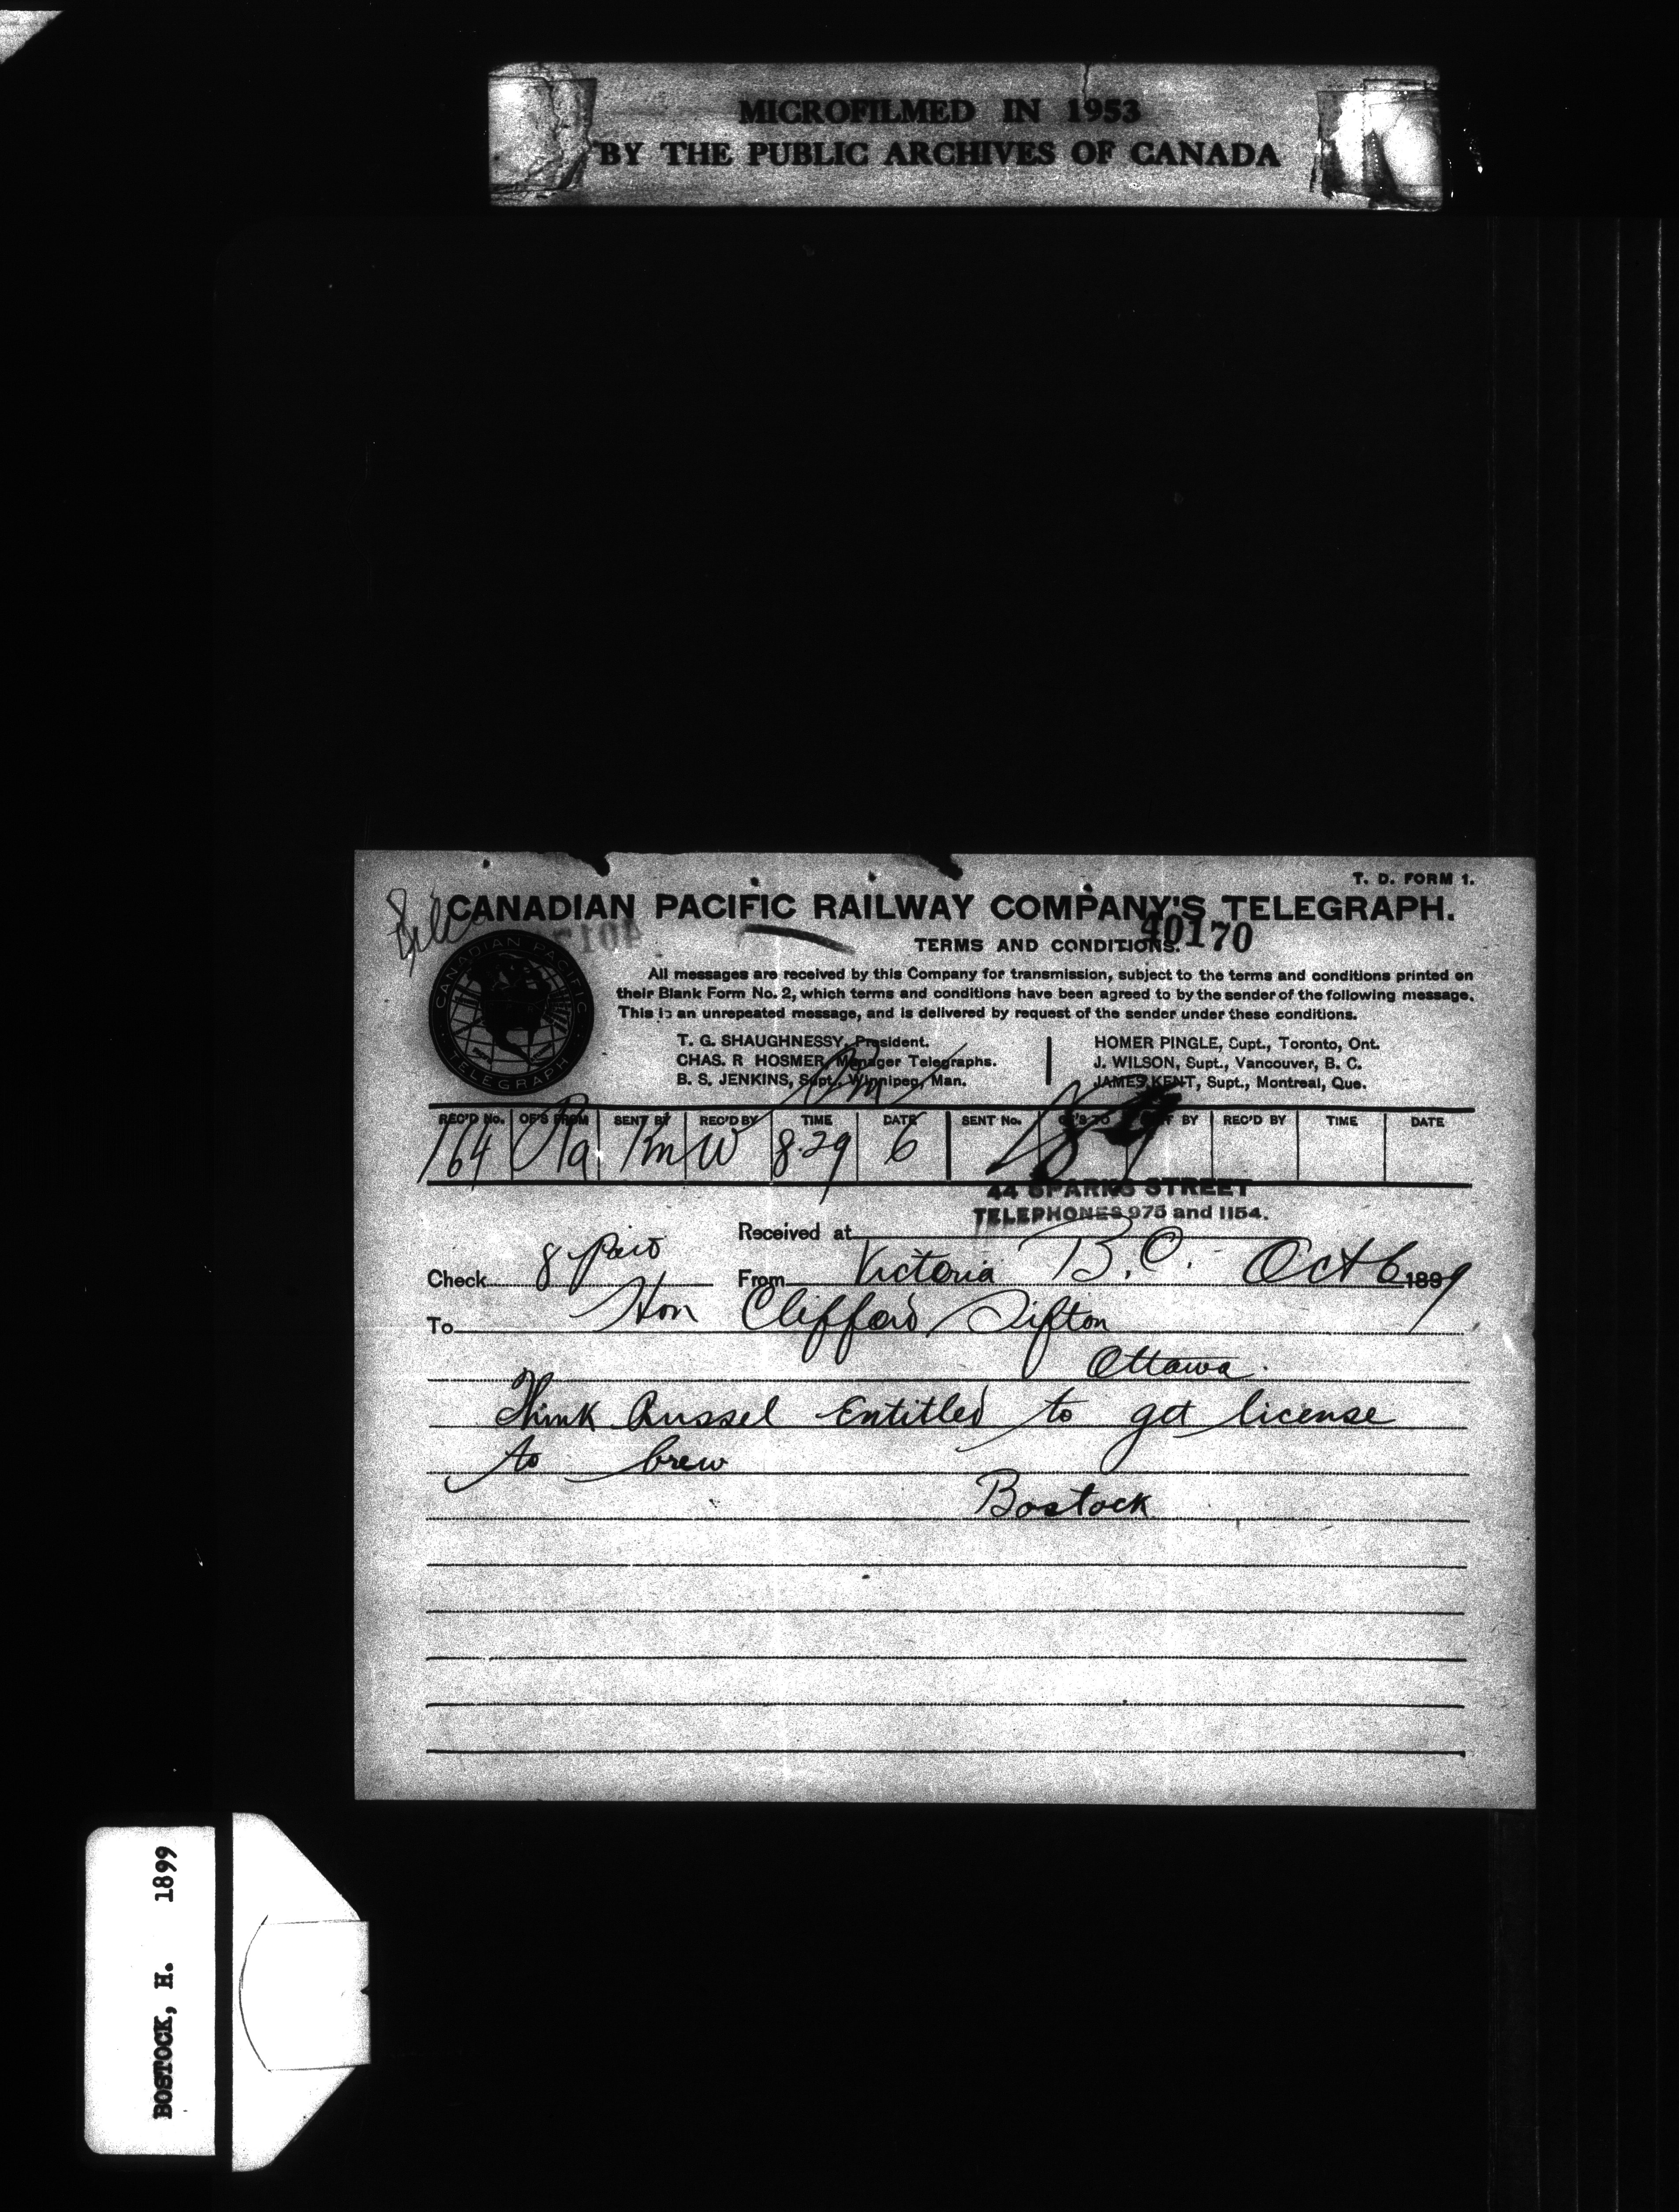 MICROFILMED IN 1953
BY THE PUBLIC ARCHIVES OF CANADA
T. D. FORM 1.
CANADIAN PACIFIC RAILWAY COMPANY'S TELEGRAPH.
40170
TERMS AND CONDITIONS.
All messages are received by this Company for transmission, subject to the terms and conditions printed on
their Blank Form No. 2, which terms and conditions have been agreed to by the sender of the following message.
This is an unrepeated message, and is delivered by request of the sender under these conditions.
CANADIAN PACIFIC TELEGRAPH
T. G. SHAUGHNESSY, President.
CHAS. R HOSMER, Manager Telegraphs.
B. S. JENKINS, Supt., Winnipeg, Man.
HOMER PINGLE, Supt., Toronto, Ont.
J. WILSON, Supt., Vancouver, B. C.
JAMES KENT, Supt., Montreal, Que.
REC'D No. OF'S FROM SENT BY REC'D BY TIME DATE SENT No. OF'S TO SENT BY REC'D BY TIME DATE
164 Km W 8.29 6
44 SPARKS STREET
TELEPHONES 975 and 1154.
Received at
Check 8 Paid From Victoria B.C. Oct 6 1899
To Hon Clifford Sifton
Ottawa.
Think Russel Entitled to get license
to brew
Bostock
BOSTOCK, H. 1899